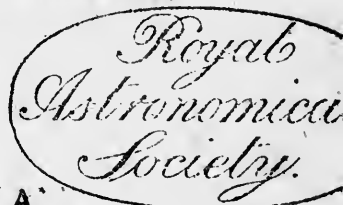 Royal
Astronomical
Society.
A